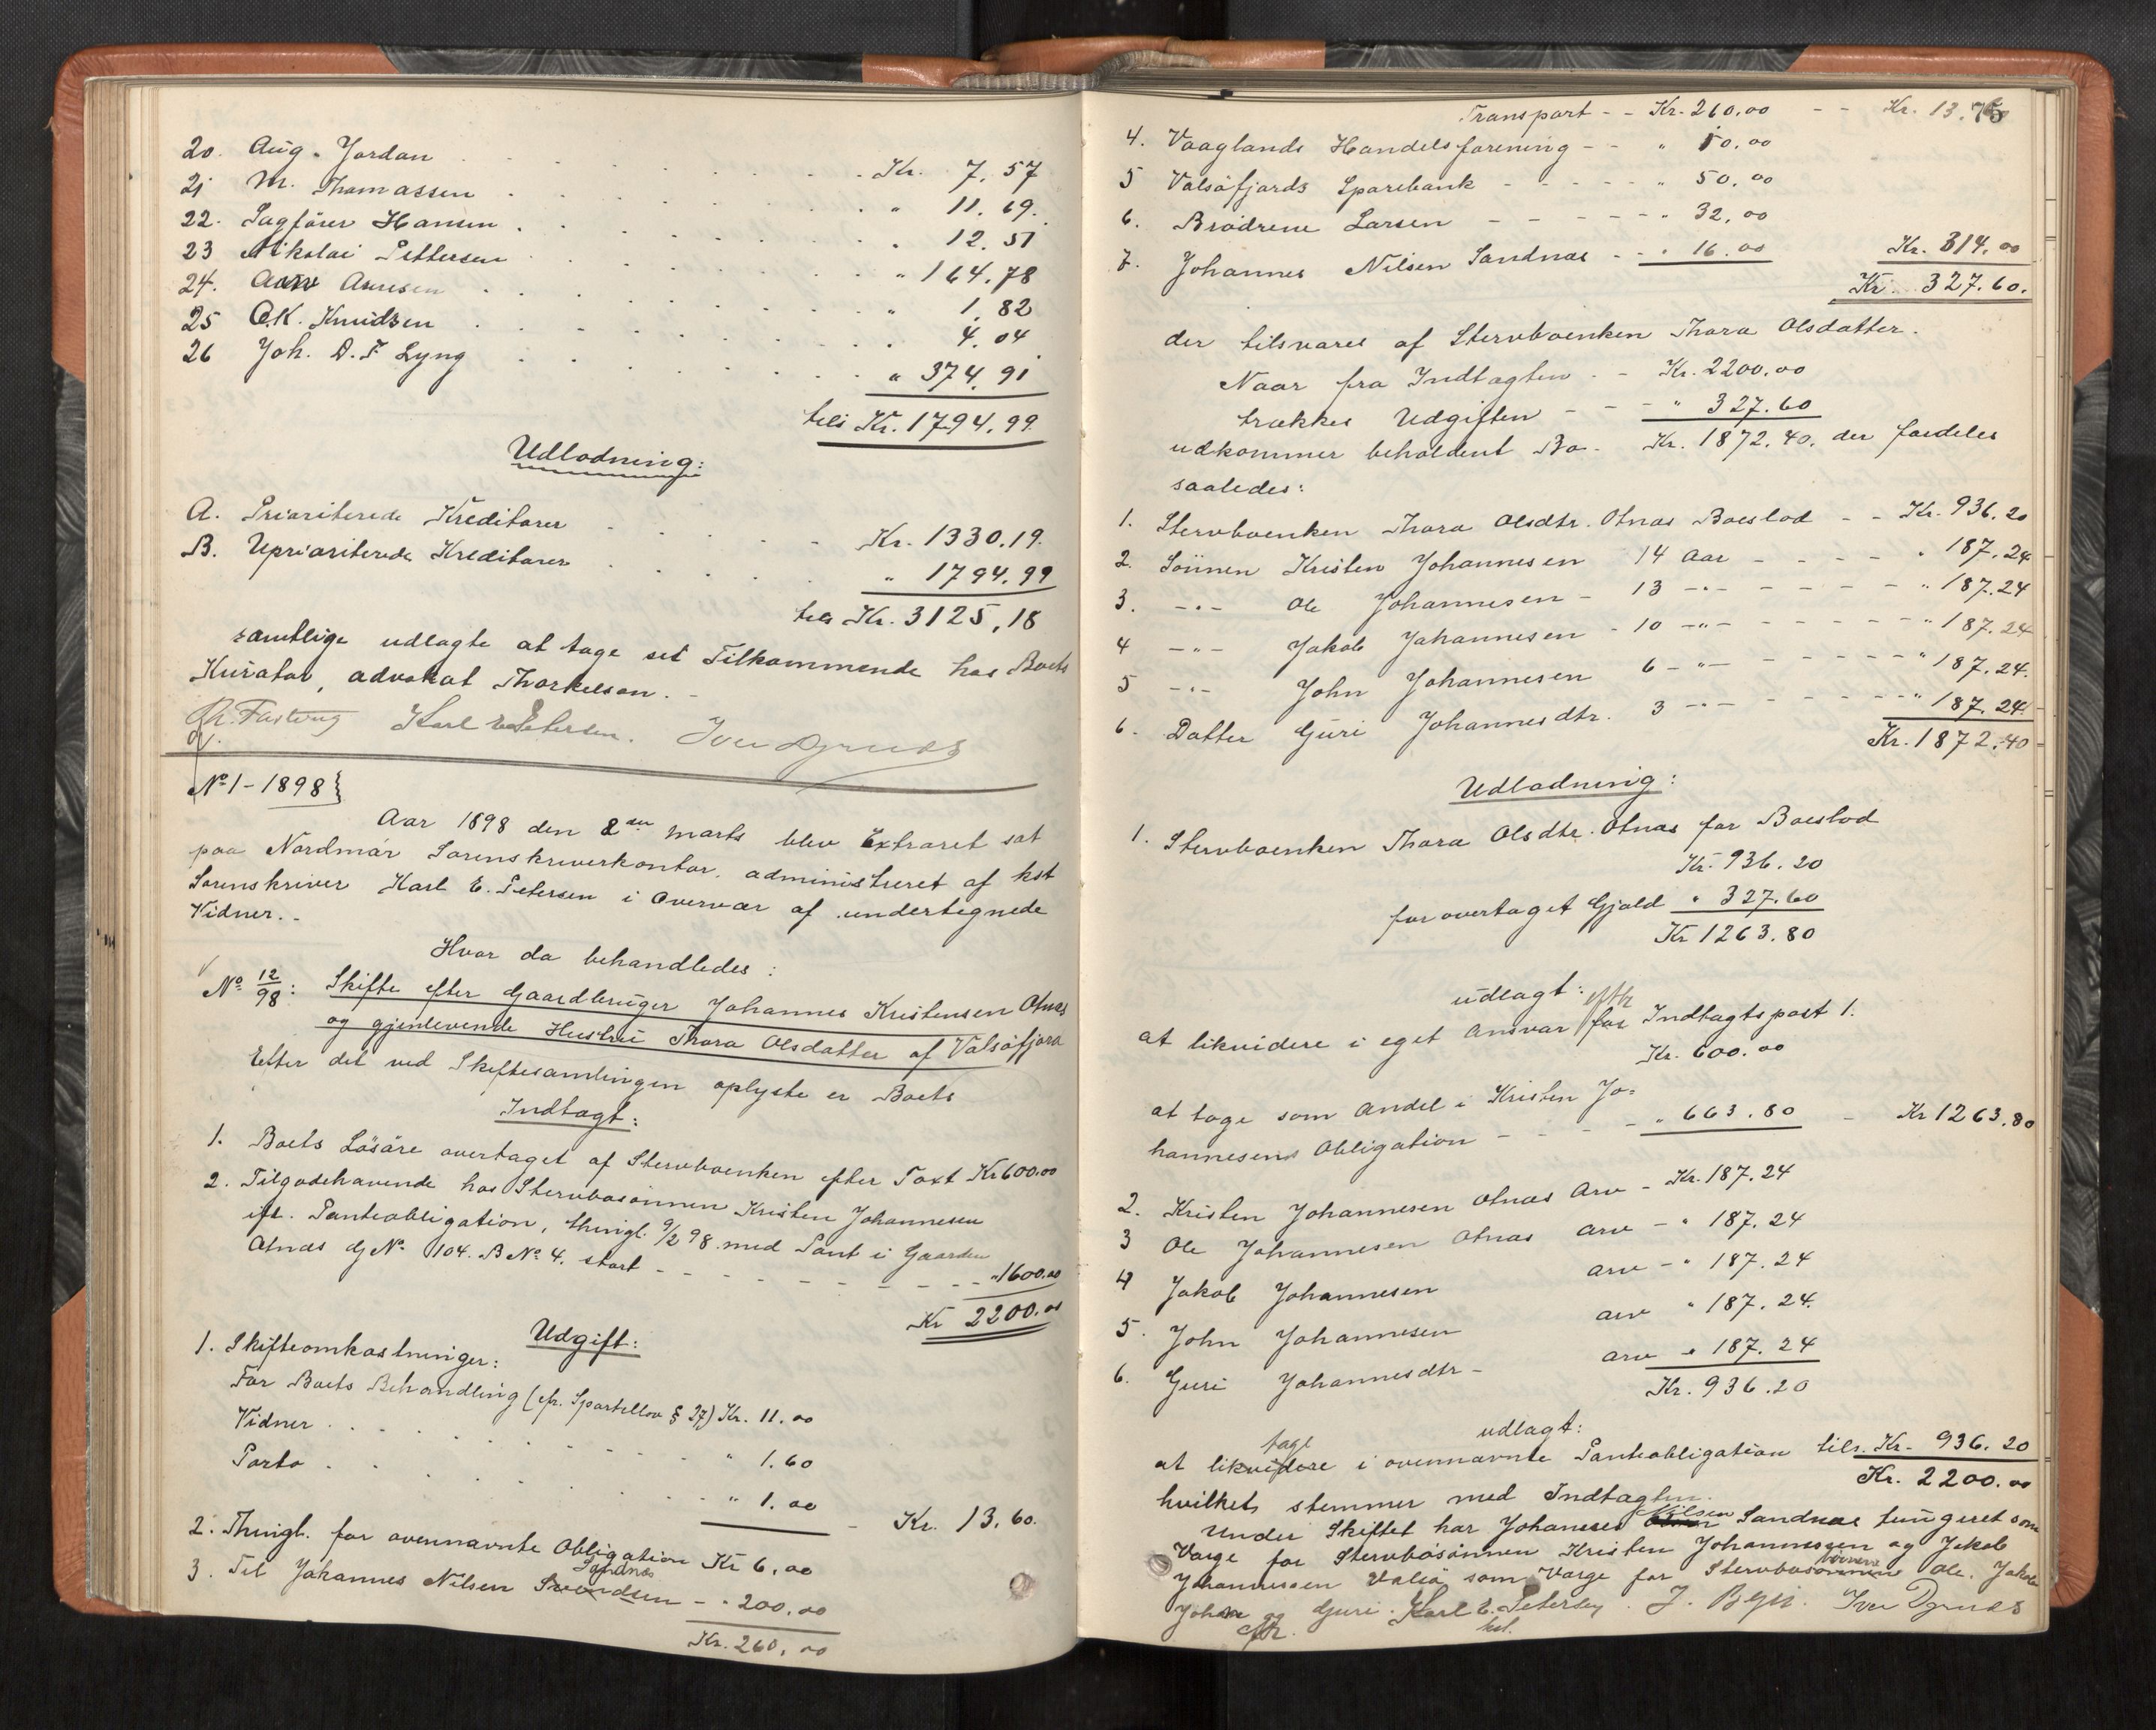 20. Aug. Jordan . . . . . . Kr. 7.57
21 M. Thomassen . . . . . . " 11.69.
22. Sagfører Hansen . . . . . . " 12.51
23 Nikolai Pettersen . . . . . . " 164.78
24. . . . . . . " 1.82
25 O.K. Knudsen . . . . . . " 4.04
26 Joh. D. F. Lyng . . . . . . " 374.91
tils Kr. 1794.99
Udlodning:
A. Prioriterede Kreditorer . . . . Kr. 1330.19.
B. Uprioriterede Kreditorer . . . . " 1794.99
tils Kr. 3125,18
samtlige udlagte at tage sit Tilkommende hos Boets
Kurator, advokat Thorkelson. -
Karl E. Petersen. Iver
No 1 - 1898}
Aar 1898 den 2den Marts blev Extraret sat
paa Nordmør Sorenskriverkontor, administreret af kst
Sorenskriver Karl E. Petersen i Overvær af undertegnede
Vidner. -
Hvor da behandledes:
No 12/98: Skifte efter Gaardbruger Johannes Kristensen Otnæs
og gjenlevende Hustru Thora Olsdatter af Valsøfjord
Efter det ved Skiftesamlingen oplyste er Boets
Indtægt:
1. Boets Løsøre overtaget af Stervboenken efter Taxt Kr 600.00
2. Tilgodehavende hos Stervbosønnen Kristen Johannesen
ifl. Panteobligation, thingl. 9/2 98 med Pant i Gaarden
Otnæs GNo. 104. BNo. 4. stort - - - - - - - - " 1600.00
Kr 2200.00
Udgift:
1. Skifteomkostninger:
For Boets Behandling (cfr. Sportellov § 27) Kr. 11.00
Vidner . . . . . . . . " 1.60
Porto . . . . . . . . " 1.00 - Kr. 13.60.
2. Thingl. for ovennævnte Obligation Kr 6,00
Sandnæs
3. Til Johannes Nilsen Svendsen - - " 200,00
Kr. 260,00
Transport - - Kr. 260.00 - - Kr. 13.
4. Vaaglands Handelsforening - - " 10.00
5 Valsøfjords Sparebank - - - - - " 50.00
6. Brødrene Larsen - - - - - " 32,00
7. Johannes Nilsen Sandnæs - - " 16.00 Kr. 314.00
Kr. 327.60.
der tilsvares af Stervboenken Thora Olsdatter.
Naar fra Indtægten - - Kr. 2200.00
trækkes Udgiften - - - " 327.60
udkommer beholdent Bo - Kr. 1872.40. der fordeles
saaledes:
1. Stervboenken Thora Olsdtr. Otnæs Boeslod - - Kr. 936.20
2. Sønnen Kristen Johannesen 14 Aar - - - - " 187.24
3. -"- Ole Johannesen - 13 -"- - - - - " 187.24
4 -"- Jakob Johannesen - 10 -"- - - - - " 187.24
5 -"- John Johannesen 6 -"- - - - - " 187.24.
6. Datter Guri Johannesdtr. 3 -"- - - - - " 187.24.
Kr. 1872.40
Udlodning:
1. Stervboenken Thora Olsdtr. Otnæs for Boeslod
Kr. 936.20
for overtaget Gjæld " 327.60
Kr 1263.80
udlagt:
efter
at likvidere i eget Ansvar for Indtægtspost 1.
Kr. 600.00
at tage som Andel i Kristen Jo-
hannesens Obligation - - - - " 663.80 - Kr 1263.80
2. Kristen Johannesen Otnæs Arv - Kr. 187.24
3 Ole Johannesen Otnæs arv - " 187.24
4 Jakob Johannesen arv - " 187.24
5. John Johannesen arv " 187.24.
6. Guri Johannesdtr - arv " 187.24
Kr. 936.20
udlagt:
tage
at likvidere i ovennævnte Panteobligation tils. Kr. 936.20
Kr. 2200.00
hvilket stemmer med Indtægten.
Nilsen
Under Skiftet har Johannes Sandnæs fungeret som
Værge for Stervbosønnen Kristen Johannessen og Jakob
børnene
Johannessen Valsø som Værge for Stervbosønnen Ole, Jakob
John og Guri. Karl E. Petersen. Iver
kst.